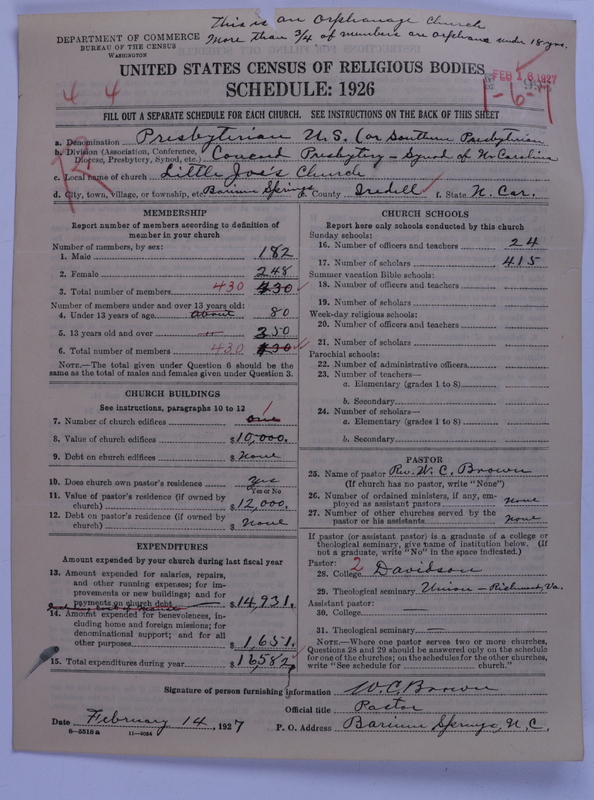 This is an Orphanage Church
More than 3/4 of members are orphans under 18 yrs.
DEPARTMENT OF COMMERCE
BUREAU OF THE CENSUS
WASHINGTON
UNITED STATES CENSUS OF RELIGIOUS BODIES
FEB 16 1927
SCHEDULE: 1926
1-6-7
4 4
FILL OUT A SEPARATE SCHEDULE FOR EACH CHURCH. SEE INSTRUCTIONS ON THE BACK OF THIS SHEET
a. Denomination Presbyterian U.S. (or Southern Presbyterian
b. Division (Association, Conference, Diocese, Presbytery, Synod, etc.) Concord Presbytery - Synod of No Carolina
c. Local name of church Little Joe's Church
d. City, town, village, or township, etc. Barium Springs e. County Iredell f. State N. Car.
MEMBERSHIP
Report number of members according to definition of
member in your church
Number of members, by sex:
1. Male 182
2. Female 248
3. Total number of members 430 430
Number of members under and over 13 years old:
4. Under 13 years of age about 80
5. 13 years old and over " 350
6. Total number of members 430 430
NOTE.—The total given under Question 6 should be the
same as the total of males and females given under Question 3.
CHURCH BUILDINGS
See instructions, paragraphs 10 to 12
7. Number of church edifices one
8. Value of church edifices $10,000.
9. Debt on church edifices $ None
10. Does church own pastor's residence yes
Yes or No
11. Value of pastor's residence (if owned by
church) $12,000.
12. Debt on pastor's residence (if owned by
church) $ None
EXPENDITURES
Amount expended by your church during last fiscal year
13. Amount expended for salaries, repairs,
and other running expenses; for im-
provements or new buildings; and for
payments on church debt $14,931.
14. Amount expended for benevolences, in-
cluding home and foreign missions; for
denominational support; and for all
other purposes $1,651.
15. Total expenditures during year $16,582
CHURCH SCHOOLS
Report here only schools conducted by this church
Sunday schools:
16. Number of officers and teachers 24
17. Number of scholars 415
Summer vacation Bible schools:
18. Number of officers and teachers
19. Number of scholars
Week-day religious schools:
20. Number of officers and teachers
21. Number of scholars
Parochial schools:
22. Number of administrative officers
23. Number of teachers—
a. Elementary (grades 1 to 8)
b. Secondary
24. Number of scholars—
a. Elementary (grades 1 to 8)
b. Secondary
PASTOR
25. Name of pastor Rev. W. C. Brown
(If church has no pastor, write "None")
26. Number of ordained ministers, if any, em-
ployed as assistant pastors none
27. Number of other churches served by the
pastor or his assistants none
If pastor (or assistant pastor) is a graduate of a college or
theological seminary, give name of institution below. (If
not a graduate, write "No" in the space indicated.)
Pastor: 2
28. College Davidson
29. Theological seminary Union - Richmond, Va.
Assistant pastor:
30. College
31. Theological seminary
NOTE.—Where one pastor serves two or more churches,
Questions 28 and 29 should be answered only on the schedule
for one of the churches; on the schedules for the other churches,
write "See schedule for church."
Signature of person furnishing information W.C. Brown
Official title Pastor
Date February 14, 1927 P. O. Address Barium Springs, N.C.
8—5518a 11—9034